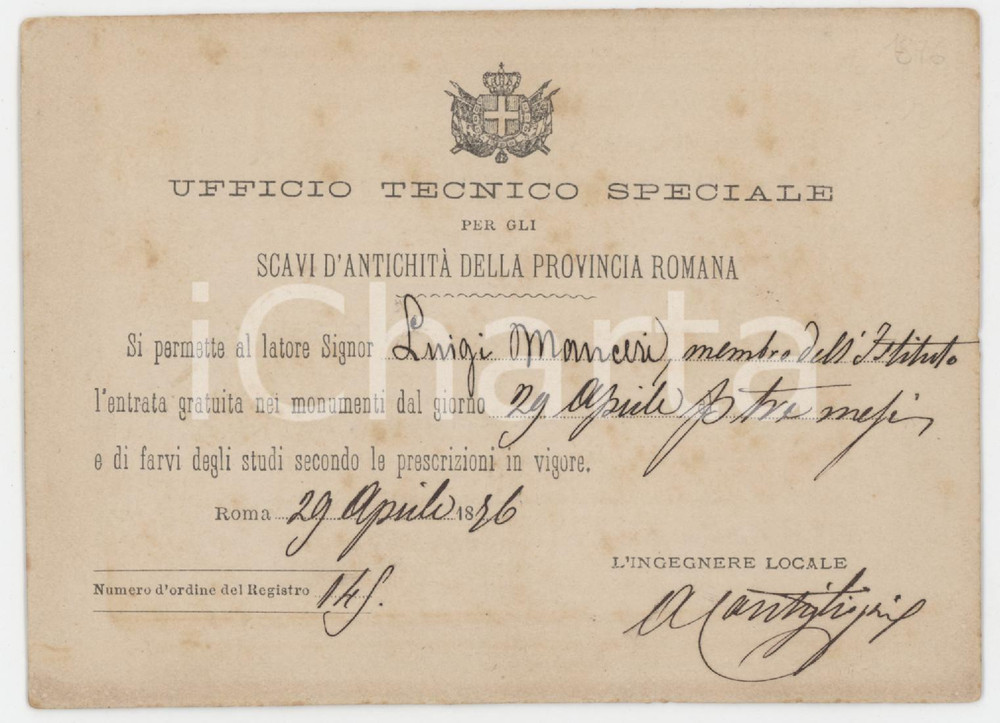 UFFICIO TECNICO SPECIALE
PER GLI
SCAVI D'ANTICHITÀ DELLA PROVINCIA ROMANA
iCharta
Si permette al latore Signor Luigi membro dell'Istituto
l'entrata gratuita nei monumenti dal giorno 29 Aprile p tre mesi
e di farvi degli studi secondo le prescrizioni in vigore.
Roma 29 Aprile 18
L'INGEGNERE LOCALE
Numero d'ordine del Registro 145.